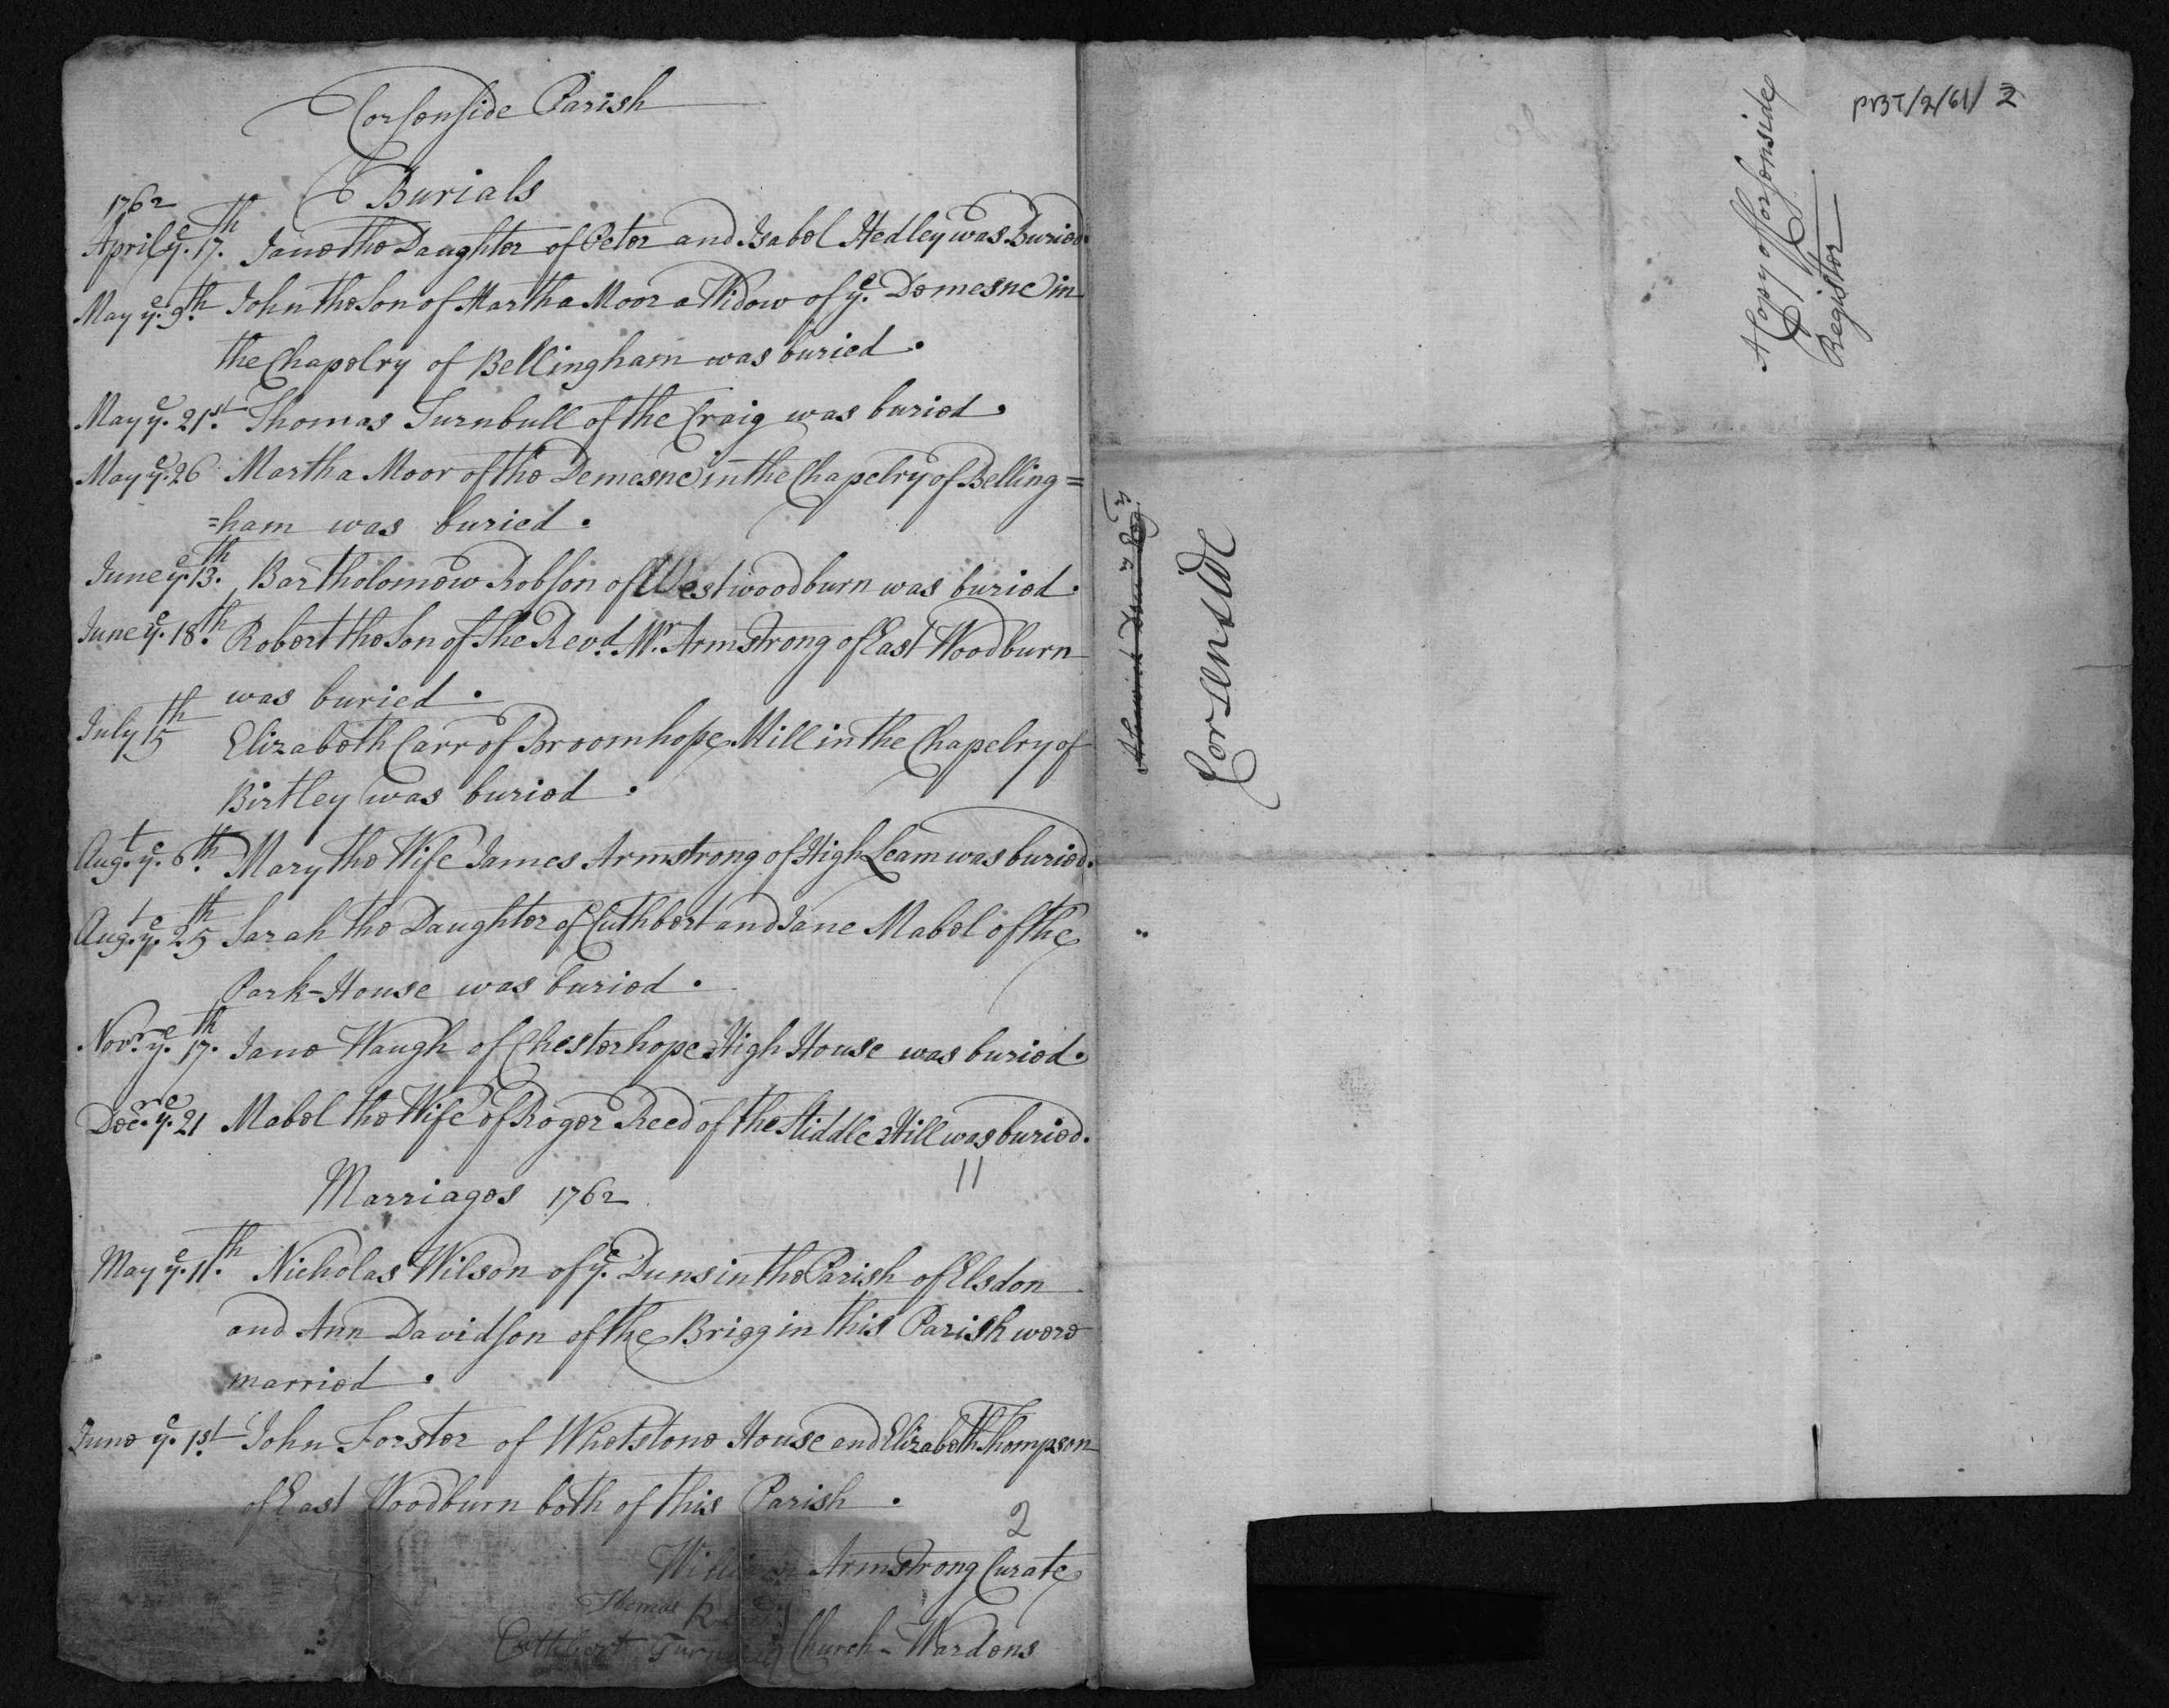 Corsenside Parish
Burials
1762
April ye. 17.th Jane the Daughter of Peter and Isabel Hedley was Buried.
May ye. 9.th John the Son of Martha Moor a Widow of ye. Demesne in
the Chapelry of Bellingham was buried.
May ye. 21st. Thomas Turnbull of the Craig was buried.
May ye. 26 Martha Moor of the Demesne in the Chapelry of Belling=
=ham was buried.
June ye. 13.th Bartholomew Robson of Westwoodburn was buried.
June ye. 18.th Robert the Son of the Revd. Mr. Armstrong of East Woodburn
was buried.
July 15th Elizabeth Carr of Broomhope Mill in the Chapelry of
Birtley was buried.
Augt. ye. 6th. Mary the Wife James Armstrong of High Leam was buried.
Augt. ye. 25th Sarah the Daughter of Cuthbert and Jane Mabel of the
Park-House was buried.
Novr. ye. 17.th Jane Waugh of Chesterhope High House was buried.
Decr. ye. 21 Mabel the Wife of Roger Reed of the Hiddle Hill was buried.
11
Marriages 1762
May ye. 11.th Nicholas Wilson of ye. Duns in the Parish of Elsdon
and Ann Davidson of the Brigg in this Parish were
married.
June ye. 1st. John Forster of Whetstone House and Elizabeth Thompson
of East Woodburn both of this Parish.
2
William Armstrong Curate
Thomas
Cuthbert Church-Wardens
A Copy of Corsonside
Register
PBT/2/61/2
Corsenside